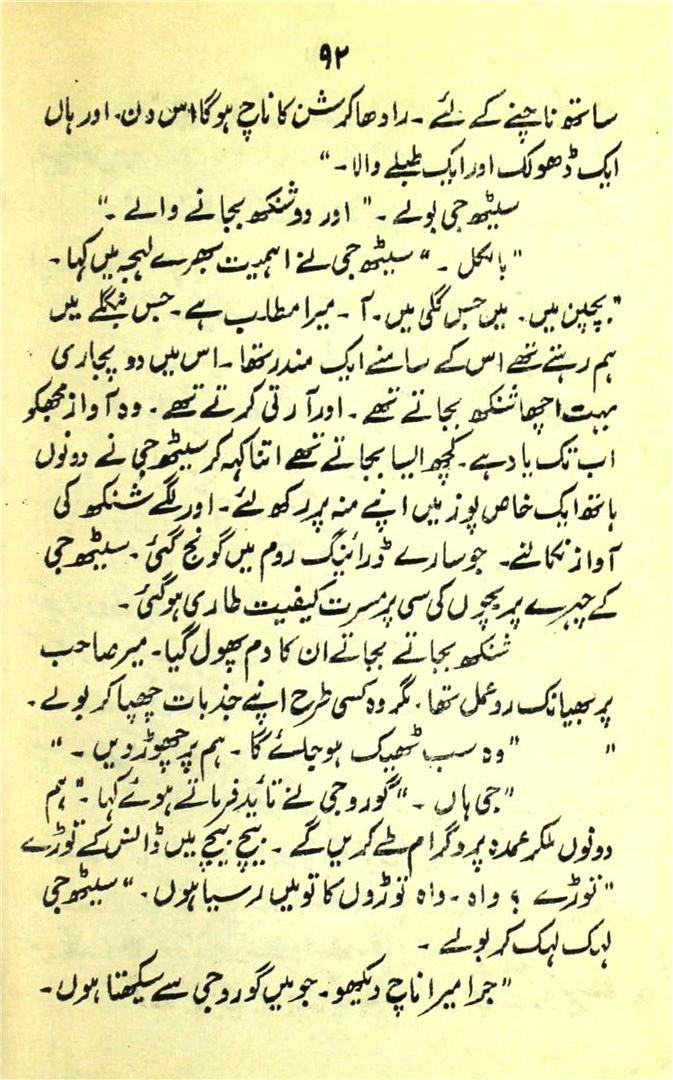 ۹۲
ساتھ ناچنے کے لئے ۔ رادھا کرشن کا ناچ ہوگا اس دن۔ اور ہاں
ایک ڈھولک اور ایک طبلے والا۔"
سیٹھ جی بولے ۔" اور دو شنکھ بجانے والے ۔"
"بالکل ۔" سیٹھ جی نے اہمیت بھرے لہجہ میں کہا ۔
"بچپن میں۔ میں جس گلی میں۔ آ ۔ میرا مطلب ہے ۔ جس بنگلے میں
ہم رہتے تھے اس کے سامنے ایک مندر تھا ۔ اس میں دو پجاری
بہت اچھا شنکھ بجاتے تھے ۔ اور آرتی کرتے تھے ۔ وہ آواز مجھکو
اب تک یاد ہے ۔ کچھ ایسا بجاتے تھے اتنا کہہ کر سیٹھ جی نے دونوں
ہاتھ ایک خاص پوز میں اپنے منہ پر رکھ لئے ۔ اور لگے شنکھ کی
آواز نکالنے ۔ جو سارے ڈرائینگ روم میں گونج گئی ۔ سیٹھ جی
کے چہرے پر بچوں کی سی پر مسرت کیفیت طاری ہوگئی ۔
شنکھ بجاتے بجاتے ان کا دم پھول گیا ۔ میر صاحب
پر بھیانک رد عمل تھا ۔ مگر وہ کسی طرح اپنے جذبات چھپا کر بولے ۔
" "وہ سب ٹھیک ہو جائے گا ۔ ہم پر چھوڑ دیں ۔"
"جی ہاں ۔" گورو جی نے تائید فرماتے ہوئے کہا ۔" ہم
دونوں ملکر عمدہ پروگرام طے کریں گے ۔ بیچ بیچ میں ڈانس کے توڑے
"توڑے ؟ واہ ۔ واہ توڑوں کا تو میں رسیا ہوں ۔" سیٹھ جی
لہک لہک کر بولے ۔
"جرا میرا ناچ دیکھو ۔ جو میں گورو جی سے سیکھتا ہوں ۔